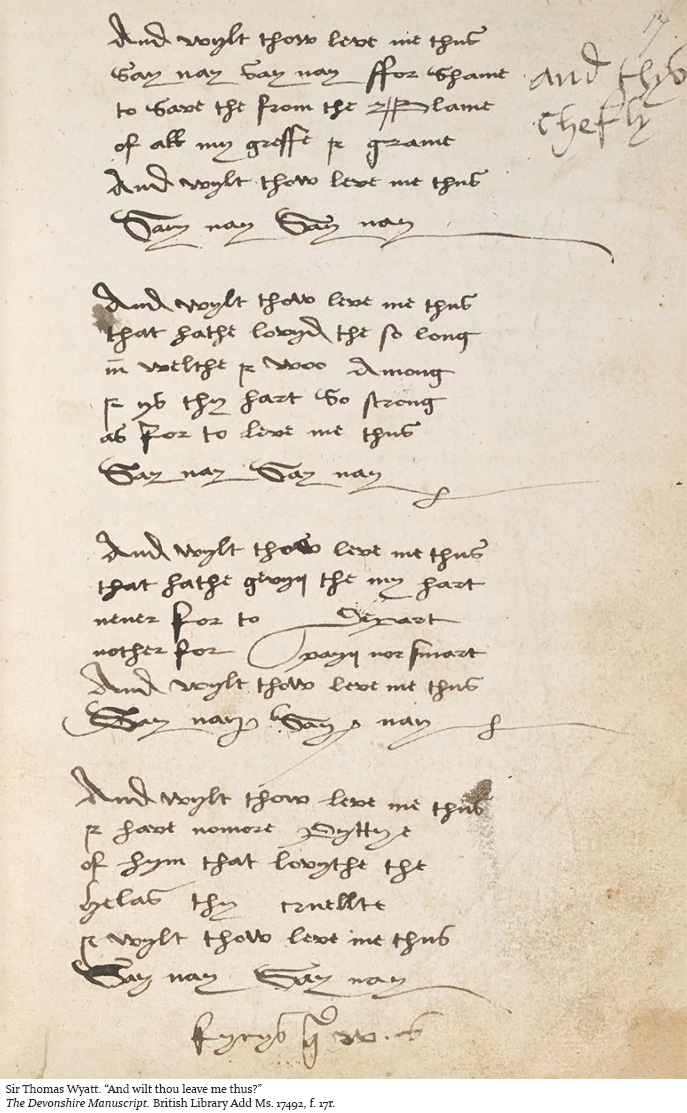 17
And wylt thow leve me thus
Say nay Say nay ffor Shame
and thys
chefly
to Save the from the Blame
of all my greffe & grame
And wylt thow leve me thus
Say nay Say nay
And wylt thow leve me thus
that hathe lovyd the so long
in welthe & woo Among
& ys thy hart So strong
as for to leve me thus
Say nay Say nay
And wylt thow leve me thus
that hathe gevyn the my hart
never for to Depart
nother for payn nor smart
And wylt thow leve me thus
Say nay Say nay
And wylt thow leve me thus
& have nomore Pyttye
of hym that lovythe the
helas thy cruellte
& wylt thow leve me thus
Say nay Say nay
fynys qd
Sir Thomas Wyatt. “And wilt thou leave me thus?”
The Devonshire Manuscript. British Library Add Ms. 17492, f. 17r.